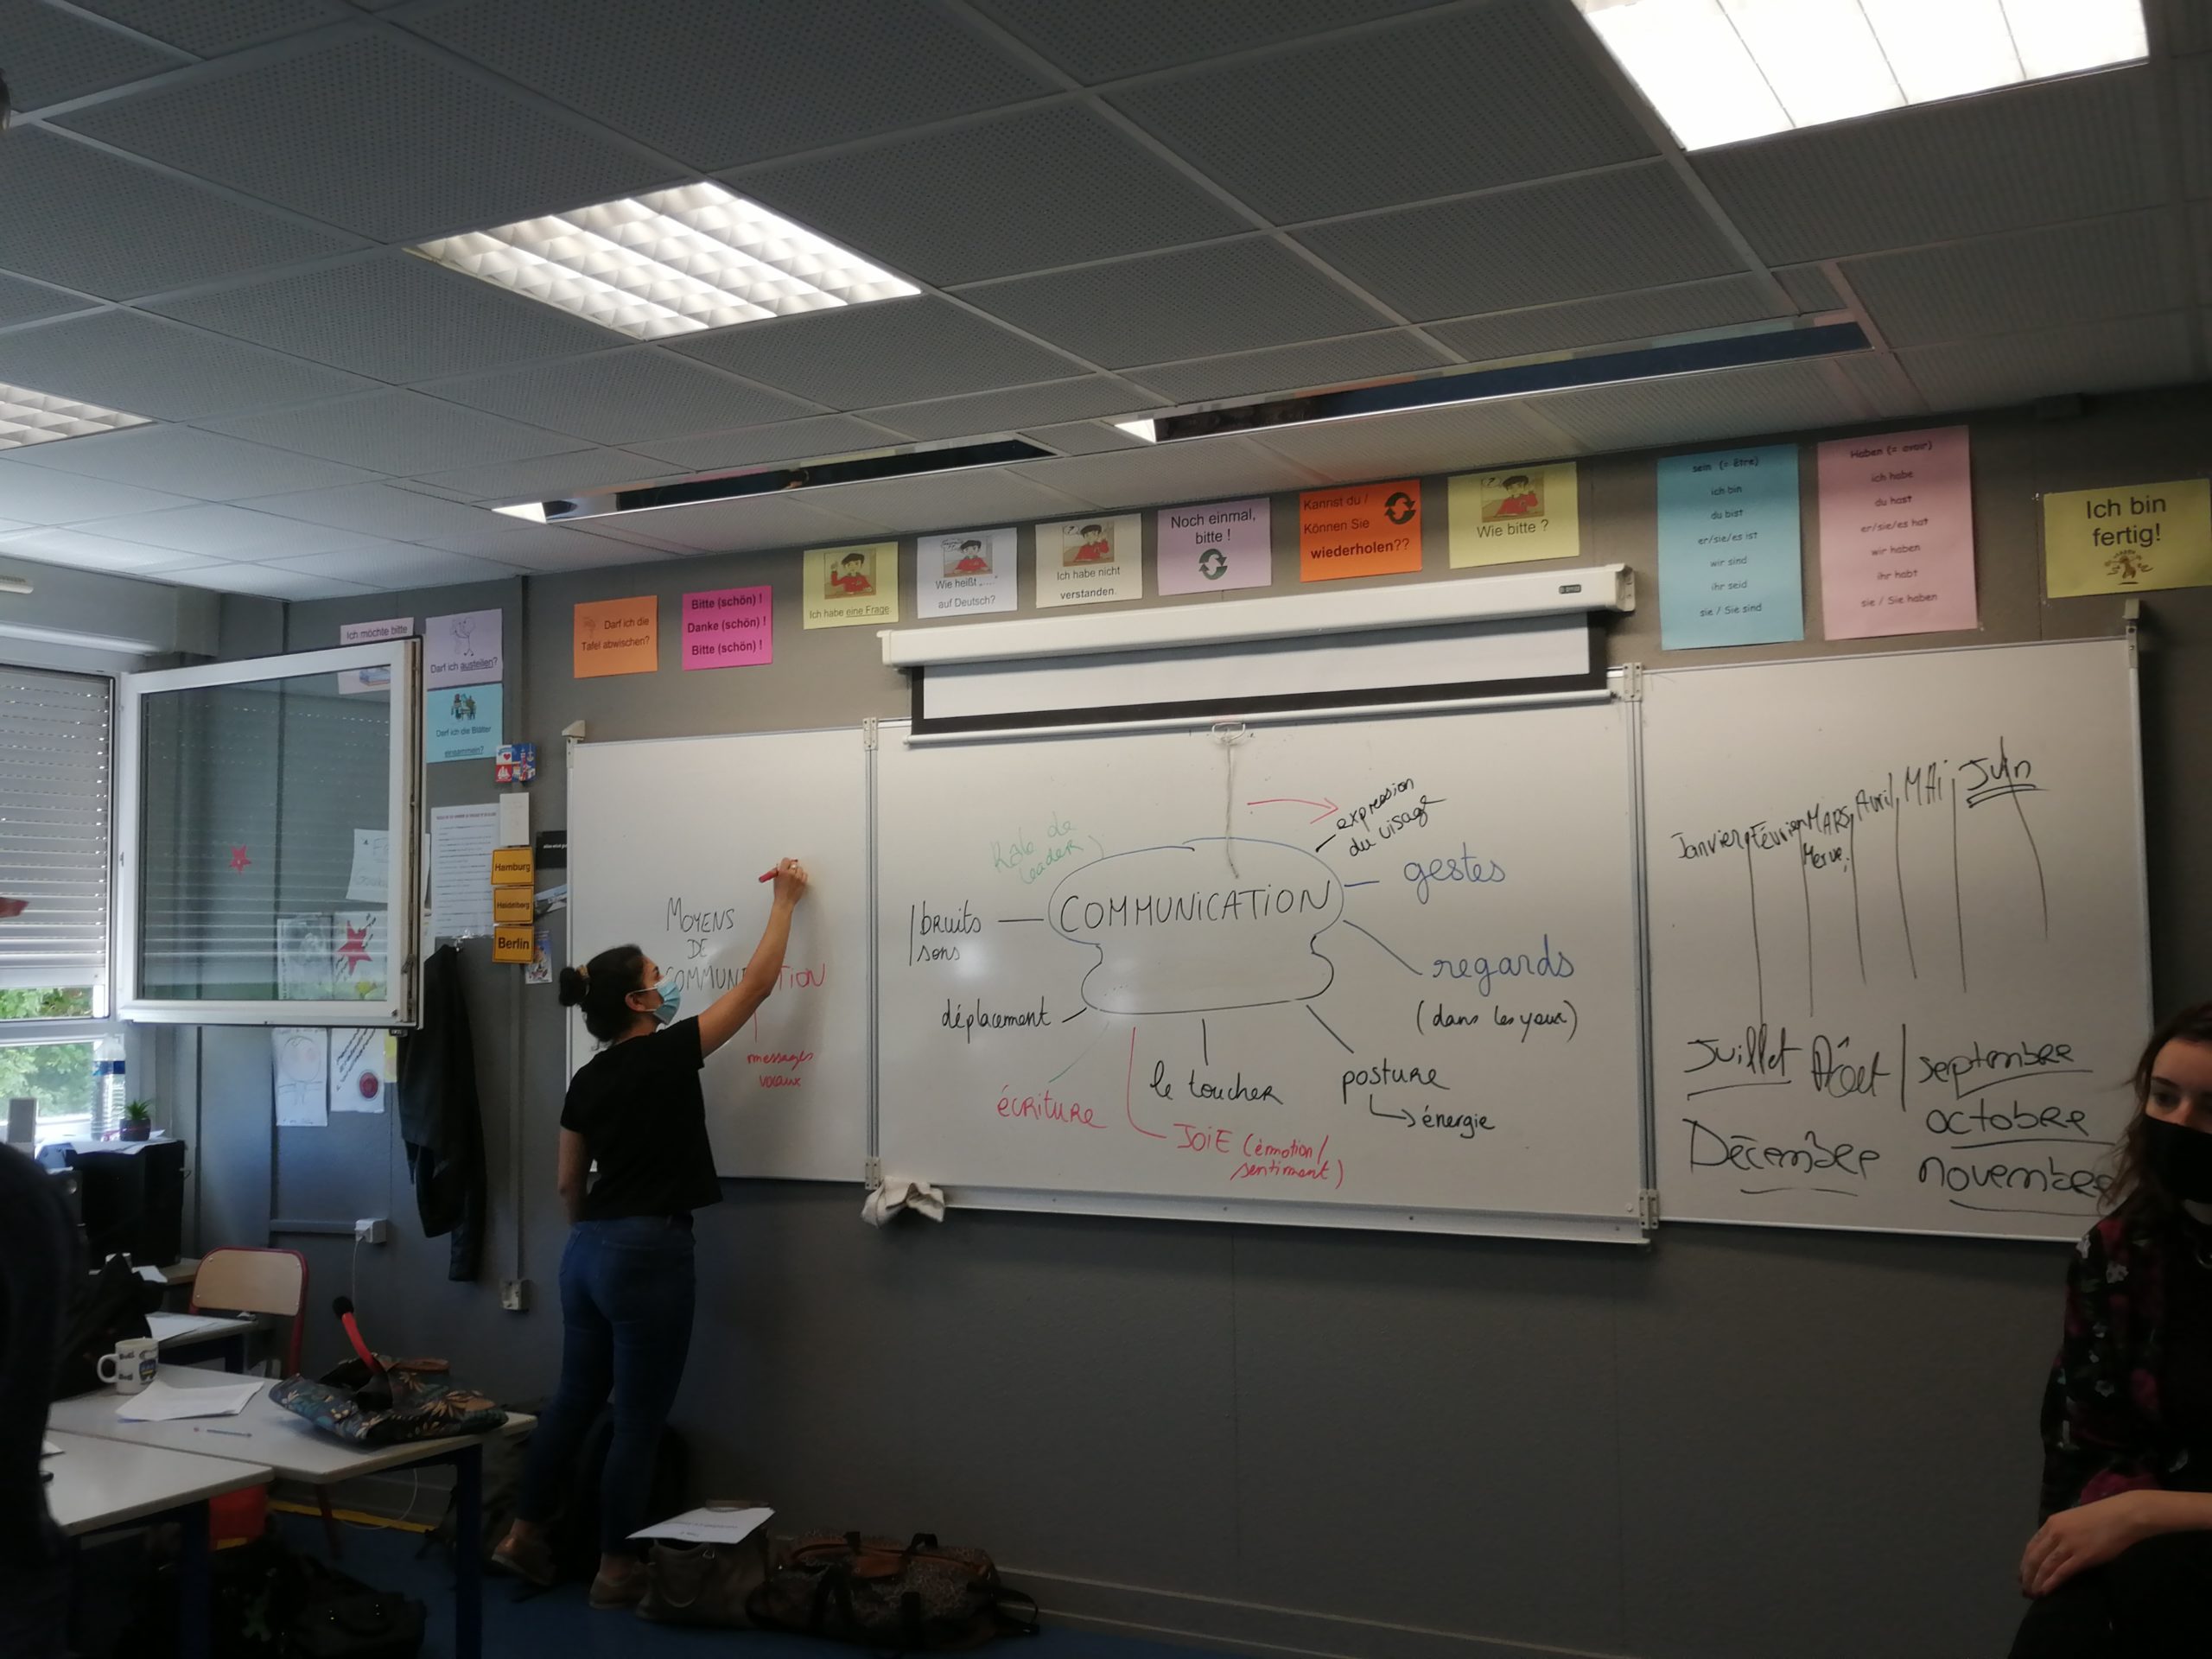 Ich möchte bitte
Darf ich austeilen?
Darf ich die Blätter
einsammen?
Hamburg
Heidelberg
Berlin
Darf ich die
Tafel abwischen?
Bitte (schön) !
Danke (schön) !
Bitte (schön) !
Ich habe eine Frage.
Wie heißt „....."
auf Deutsch?
Ich habe nicht
verstanden.
Noch einmal,
bitte !
Kannst du /
Können Sie
wiederholen??
Wie bitte ?
sein (= être)
ich bin
du bist
er/sie/es ist
wir sind
ihr seid
sie / Sie sind
Haben (= avoir)
ich habe
du hast
er/sie/es hat
wir haben
ihr habt
sie / Sie haben
Ich bin
fertig!
MOYENS
DE
COMMUNICATION
messages
vocaux
de
leader
COMMUNICATION
expression
du visage
gestes
regards
(dans les yeux)
posture
énergie
le toucher
JOIE (émotion/
sentiment)
écriture
déplacement
bruits
sons
Janvier Février MARS Avril MAi Juin
Merve
Juillet Aôut septembre
octobre
Décembre novembre